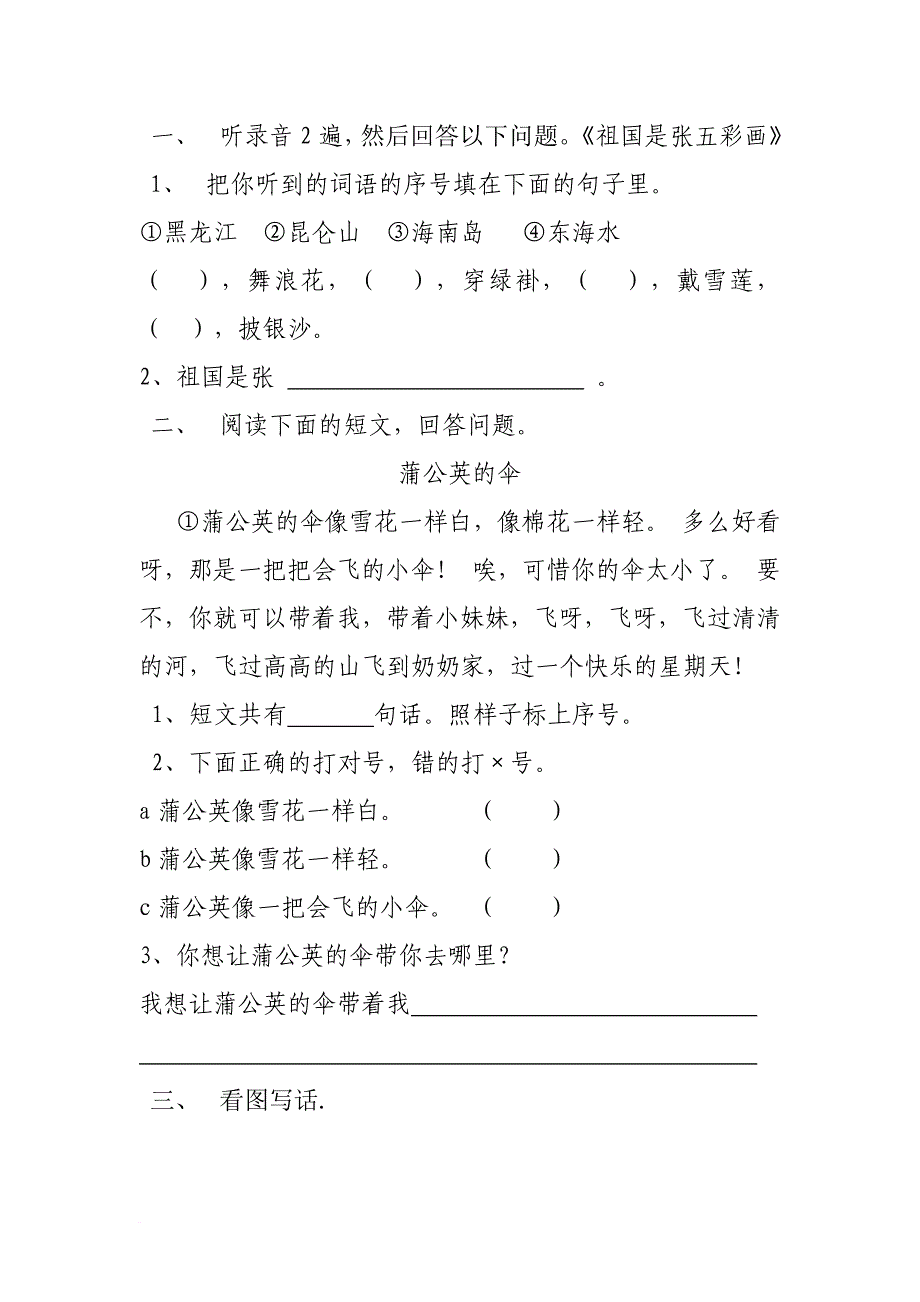 一、 听录音2遍,然后回答以下问题。《祖国是张五彩画》
1、 把你听到的词语的序号填在下面的句子里。
①黑龙江 ②昆仑山 ③海南岛 ④东海水
( ),舞浪花,( ),穿绿褂,( ),戴雪莲,
( ),披银沙。
2、祖国是张 ______________________ 。
二、 阅读下面的短文,回答问题。
蒲公英的伞
①蒲公英的伞像雪花一样白,像棉花一样轻。 多么好看
呀,那是一把把会飞的小伞! 唉,可惜你的伞太小了。 要
不,你就可以带着我,带着小妹妹,飞呀,飞呀,飞过清清
的河,飞过高高的山飞到奶奶家,过一个快乐的星期天!
1、短文共有_______句话。照样子标上序号。
2、下面正确的打对号,错的打×号。
a 蒲公英像雪花一样白。 ( )
b 蒲公英像雪花一样轻。 ( )
c 蒲公英像一把会飞的小伞。 ( )
3、你想让蒲公英的伞带你去哪里?
我想让蒲公英的伞带着我__________________________
三、 看图写话.